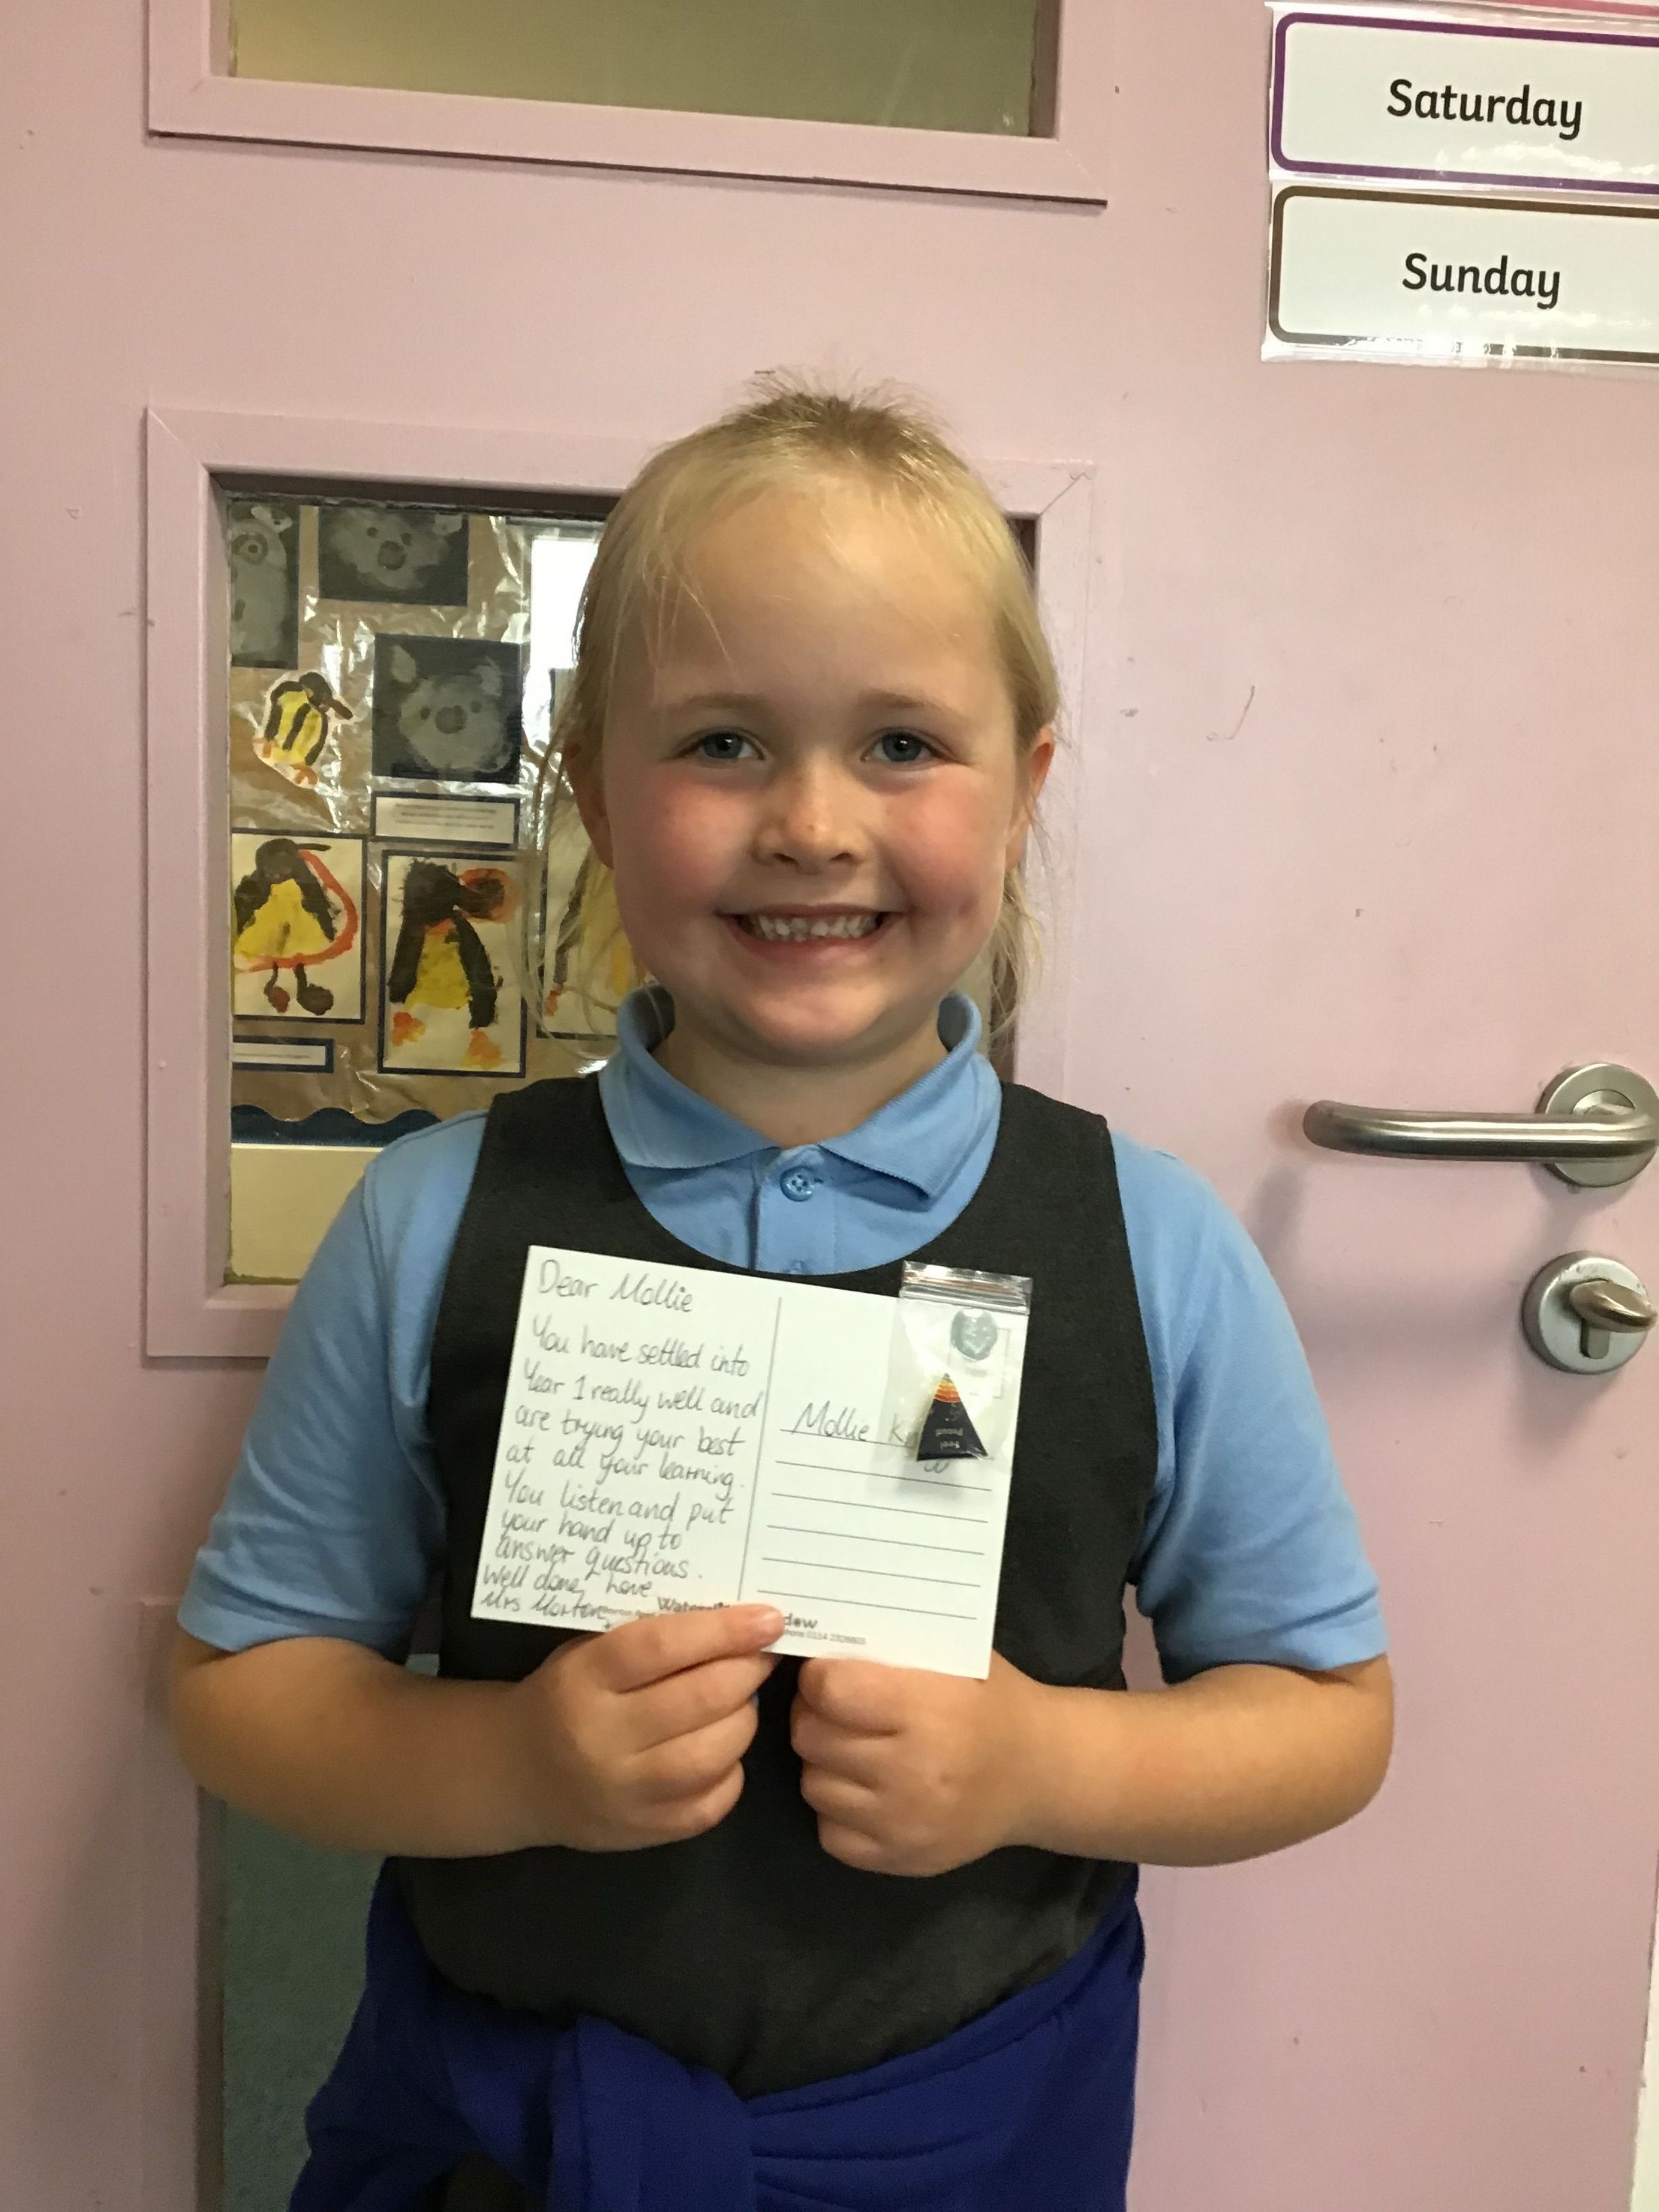 Saturday
Sunday
Dear Mollie
You have settled into
Year 1 really well and
are trying your best
at all your learning.
You listen and put
your hand up to
answer questions.
Well done, love
Mrs Morton
Mollie
Feel
Proud